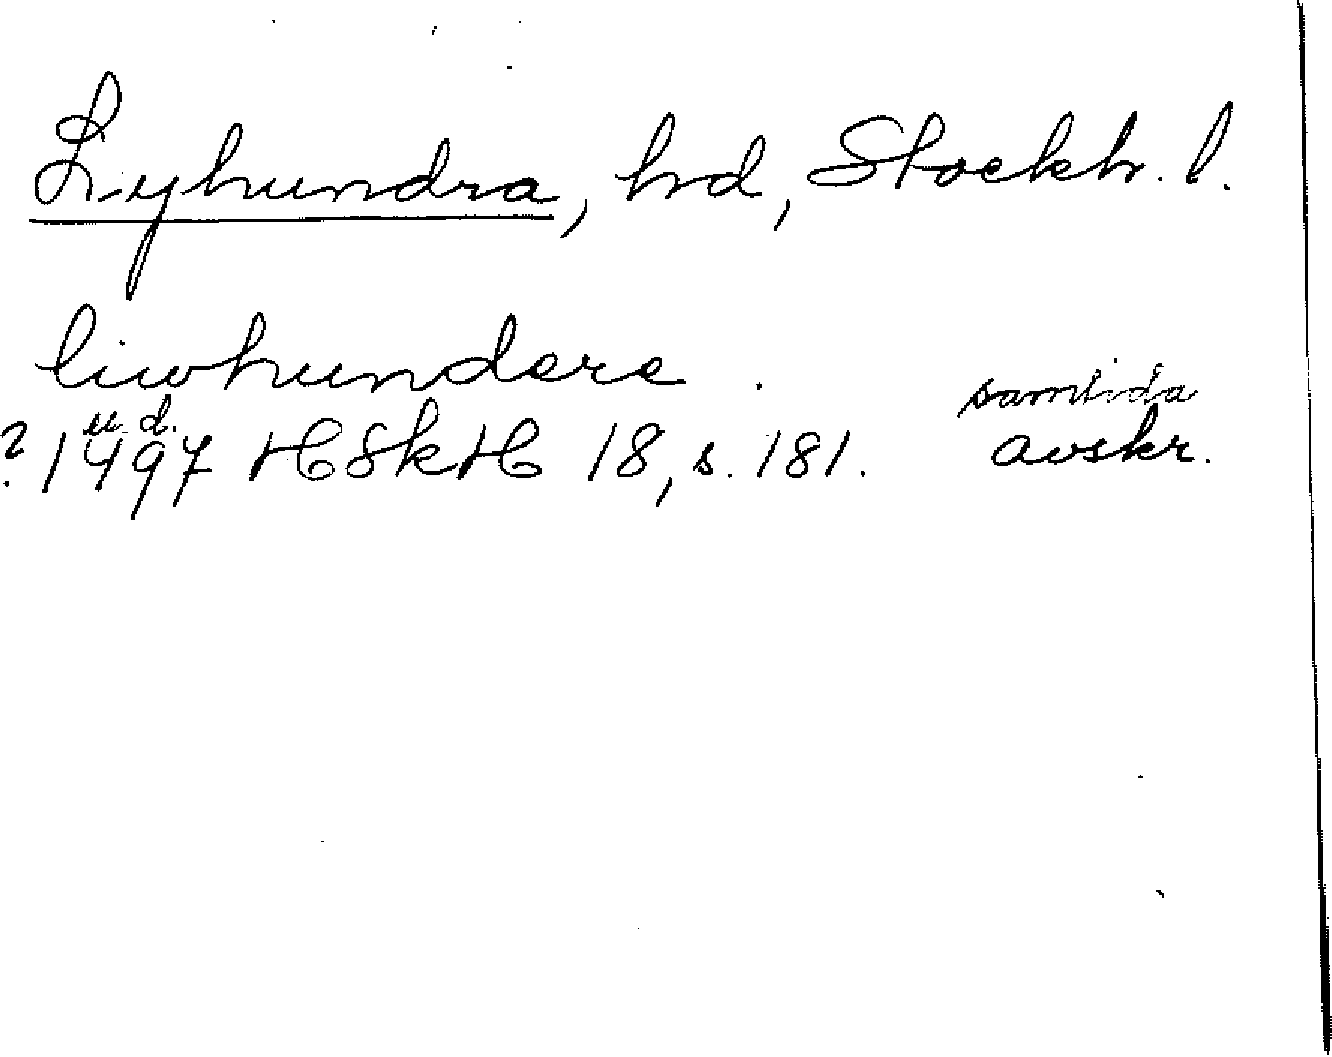 Lyhundra, hd, Stockh. l.
liwhundere.
u. d.
samtida
? 1497 HSkH 18, s. 181. avskr.